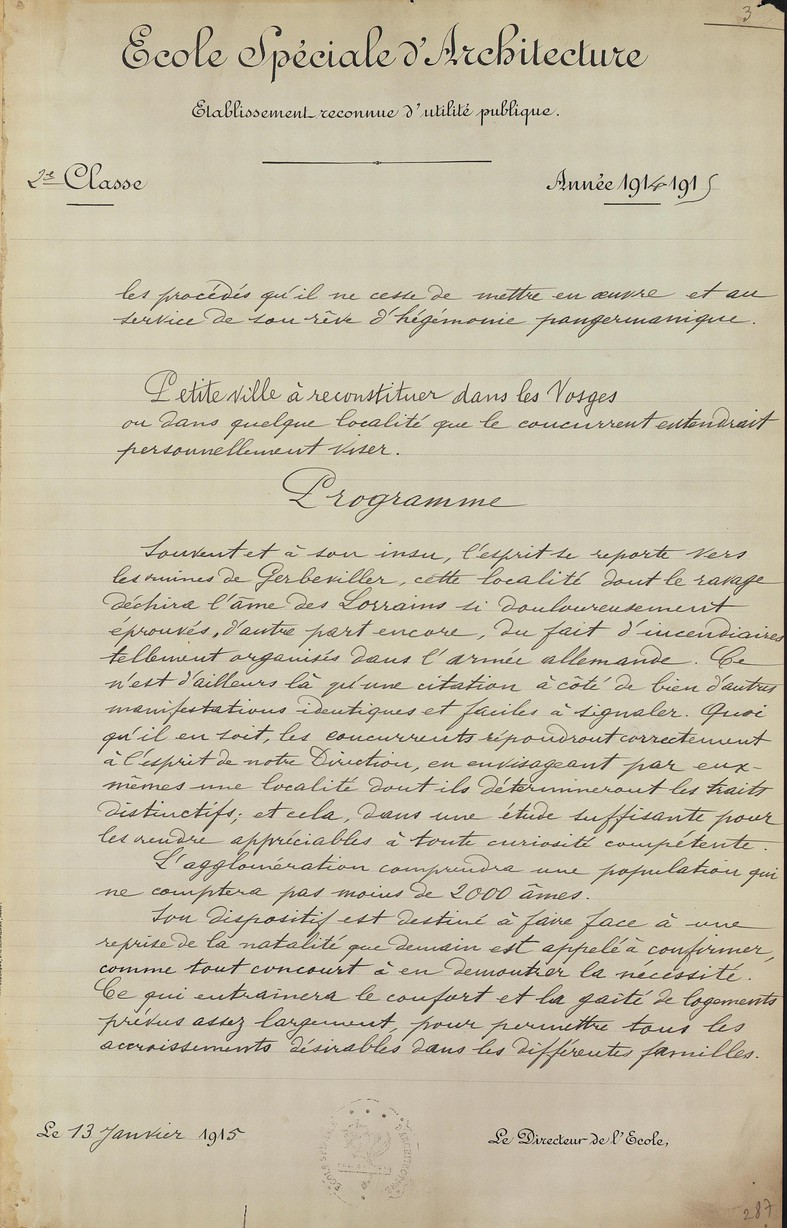 3
Ecole Spéciale d'Architecture
Etablissement reconnue d'utilité publique.
2e Classe
Année 1914-1915
les procédés qu'il ne cesse de mettre en œuvre et au
service de son rêve d'hégémonie pangermanique.
Petite ville à reconstituer dans les Vosges
ou dans quelque localité que le concurrent entendrait
personnellement viser.
Programme
Souvent et à son insu, l'esprit se reporte vers
les ruines de Gerbeviller, cette localité dont le ravage
déchira l'âme des Lorrains si douloureusement
éprouvés, d'autre part encore, du fait d'incendiaires
tellement organisés dans l'armée allemande. Ce
n'est d'ailleurs là qu'une citation à côté de bien d'autres
manifestations identiques et faciles à signaler. Quoi
qu'il en soit, les concurrents répondront correctement
à l'esprit de notre Direction, en envisageant par eux-
mêmes une localité dont ils détermineront les traits
distinctifs; et cela, dans une étude suffisante pour
les rendre appréciables à toute curiosité compétente.
L'agglomération comprendra une population qui
ne comptera pas moins de 2000 âmes.
Son dispositif est destiné à faire face à une
reprise de la natalité que demain est appelé à confirmer,
comme tout concourt à en démontrer la nécessité.
Ce qui entraînera le confort et la gaîté de logements
prévus assez largement, pour permettre tous les
accroissements désirables dans les différentes familles.
Le 13 Janvier 1915
Le Directeur de l'Ecole,
287